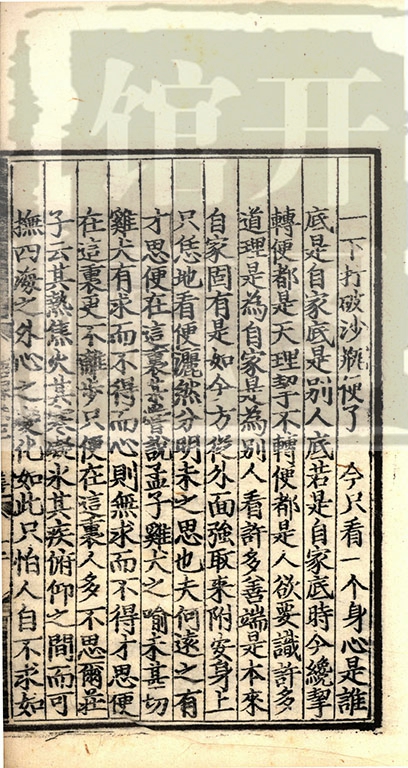 一下打破沙瓶便了　今只看一个身心是誰
底是自家底是別人底若是自家底時今纔挈
轉便都是天理挈不轉便都是人欲要識許多
道理是為自家是為別人看許多善端是本來
自家固有是如今方從外面強取來附安身上
只恁地看便灑然分明未之思也夫何遠之有
才思便在這裏某嘗說孟子雞犬之喻未甚切
雞犬有求而不得而心則無求而不得才思便
在這裏更不離步只便在這裏人多不思爾莊
子云其熱焦火其寒凝冰其疾俯仰之間而再
撫四海之外心之變化如此只怕人自不求如
开
馆